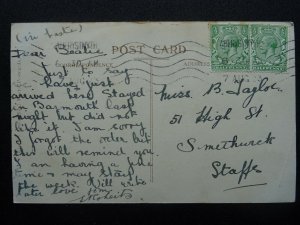 (in haste)
POST CARD
Dear Beatie
Just to say
we have just
arrived here Stayed
in Barmouth last
night but did not
like it I am sorry
I forgot the order but
this will remind you
I am having a fine
time & may stay
the week. Will write
later love from
Miss. B. Taylor
51 High St.
Smethwick
Staffs